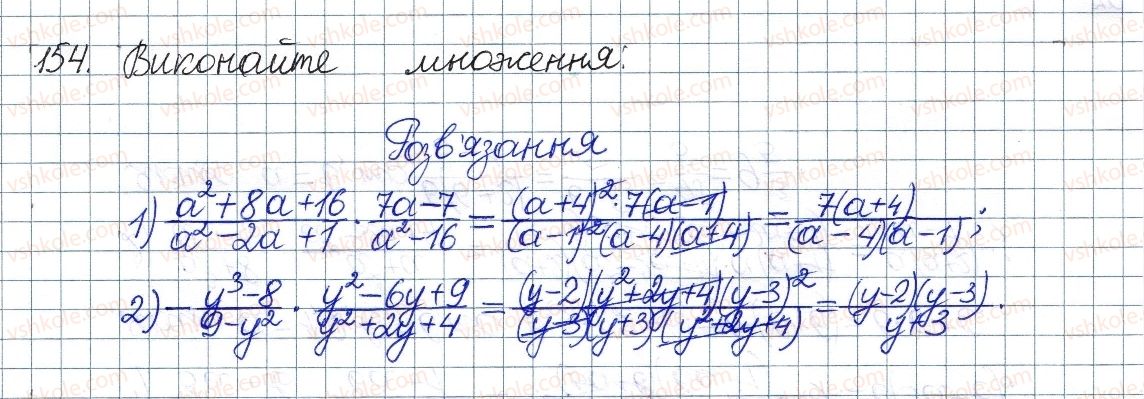 154. Виконайте множення:
Розв'язання
1) \frac{a^2+8a+16}{a^2-2a+1} \cdot \frac{7a-7}{a^2-16} = \frac{(a+4)^2 \cdot 7(a-1)}{(a-1)^2(a-4)(a+4)} = \frac{7(a+4)}{(a-4)(a-1)};
2) -\frac{y^3-8}{9-y^2} \cdot \frac{y^2-6y+9}{y^2+2y+4} = \frac{(y-2)(y^2+2y+4)(y-3)^2}{(y-3)(y+3)(y^2+2y+4)} = \frac{(y-2)(y-3)}{y+3}.